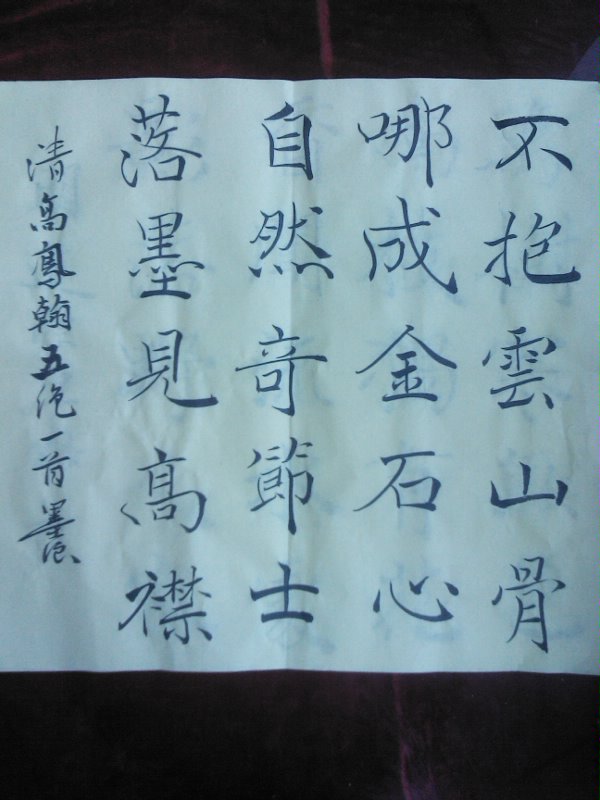 不抱雲山骨
哪成金石心
自然竒節士
落墨見髙襟
清高鳳翰五绝一首墨